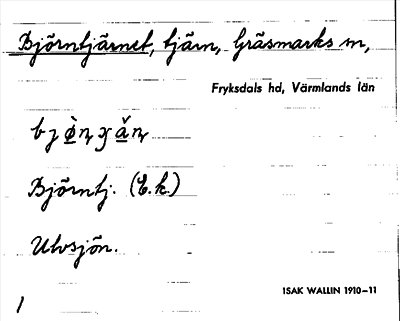 Björntjärnet, tjärn, Gräsmarks sn,
Fryksdals hd, Värmlands län
Björntj. (E.k.)
Ulvsjön.
ISAK WALLIN 1910–11
1